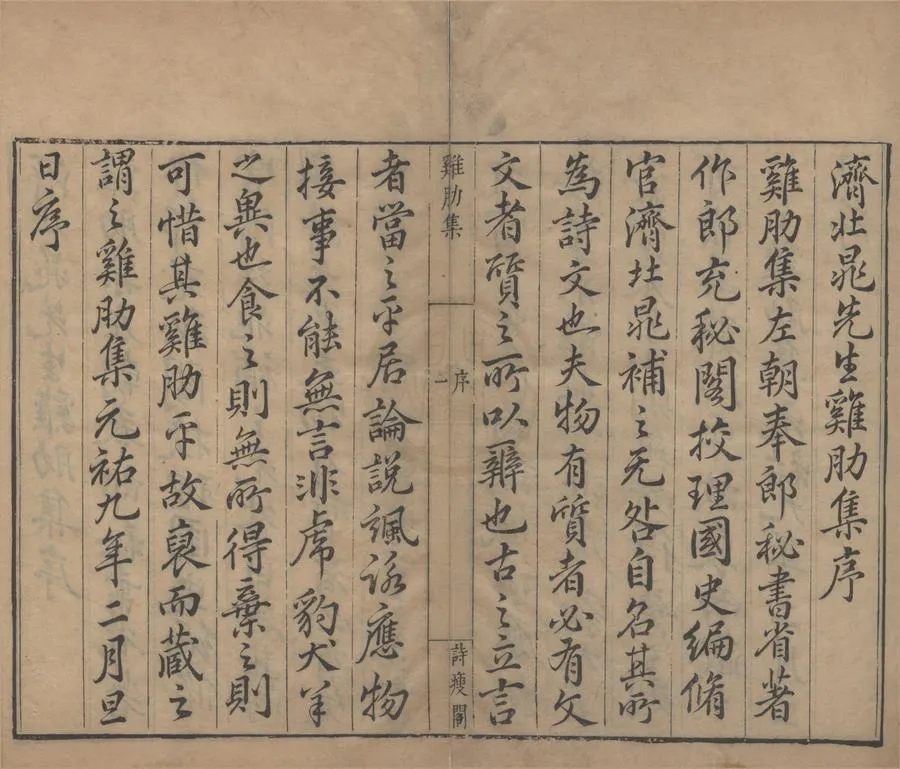 濟北晁先生雞肋集序
雞肋集左朝奉郎秘書省著
作郎充秘閣挍理國史編脩
官濟北晁補之无咎自名其所
為詩文也夫物有質者必有文
文者質之所以辨也古之立言
雞肋集
序
一
詩瘦閣
者當之平居論說諷詠應物
接事不能無言非虎豹犬羊
之異也食之則無所得棄之則
可惜其雞肋乎故裒而藏之
謂之雞肋集元祐九年二月旦
日序